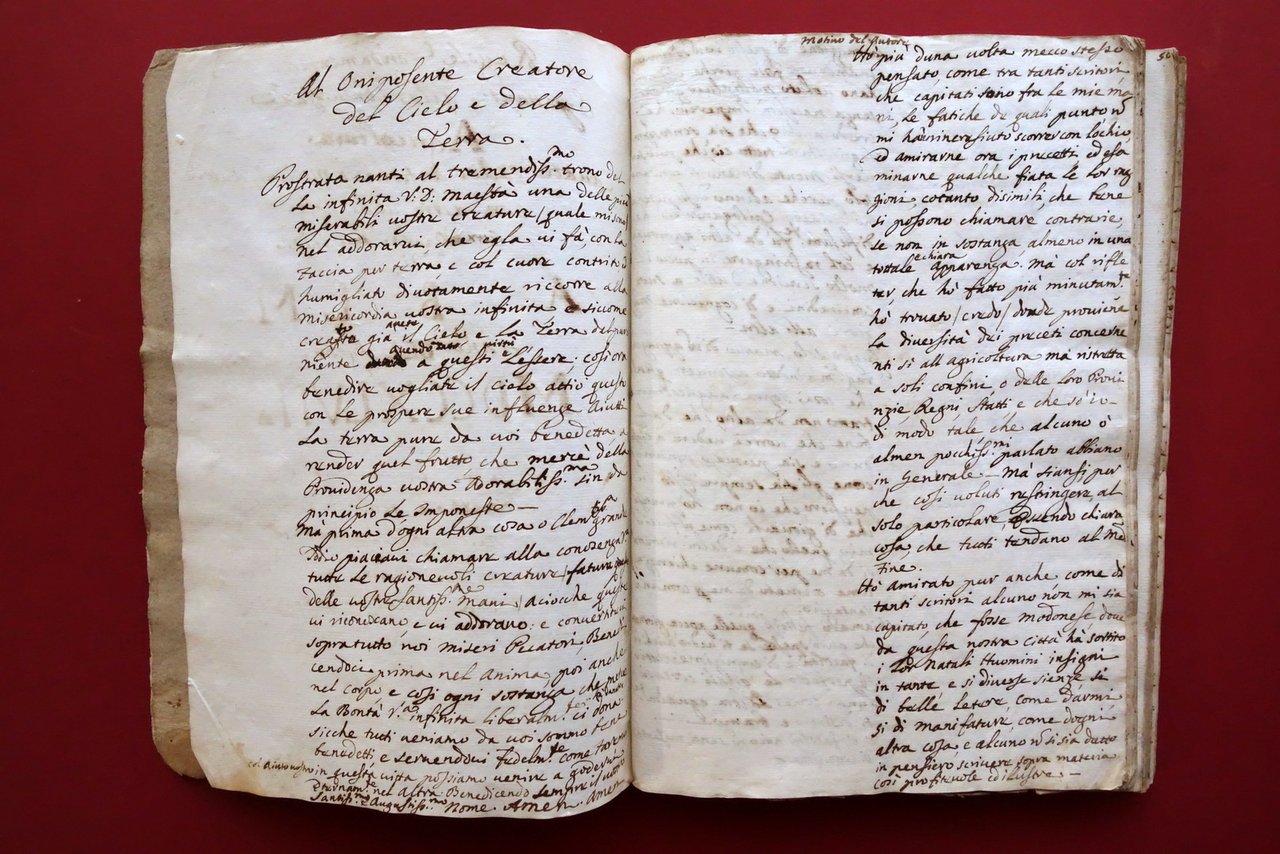 Al Onipotente Creatore
del Cielo e della
Terra.
Prostrata nanti al tremendiss.mo trono del
La infinita V. D. Maestà una delle più
miserabili vostre creature / quale
nel adorarvi, che egla vi fà con la
faccia per terra, e col cuore contrito
humigliato divotamente ricorre alla
misericordia vostra infinita e sicome
già il Cielo, e La Terra dal
niente a questi L'essere, cosi ora
benedire vogliate il cielo acciò questo
con Le prospere sue influenze Aiutti
La terra pure da voi benedetta, a
render quel frutto, che mercè della
Providenza vostra Adorabiliss.ma sin da
principio Le Imponeste —
Mà prima d'ogni altra cosa o Clem.mo grande
Iddio piacciavi chiamare alla conoscenza
tutte Le ragionevoli creature / fatture
delle vostre Santiss.me Mani / Aciocche queste
vi riconoscano, e vi addorano: e
sopratutto noi miseri Pecatori,
cendoci prima nel Anima, poi anche
nel corpo e cosi ogni sostanza che
La Bontà V.a infinita liberalm.te ci dona
sicche tutti veniamo da voi sommo bene
benedetti, e servendovi fedelm.te come
in questa vita possiamo venire a godervi
nel Altra. Benedicendo sempre il vostro
Santiss.mo e Augustiss.mo Nome. Amen. Amen
Motivo del Autore
Hò più d'una volta meco stesso
pensato, come tra tanti scritori,
che capitati sono fra le mie ma
ni, Le fatiche de quali punto nō
mi hà rincresciuto scorrer con lochio
ed amirarne ora i precetti, ed esa
minarne qualche fiata Le Lor rag
gioni, cotanto disimili, che bene
si possono chiamare contrarie,
se non in sostanza almeno in una
tottale e chiara apparenza. mà col rifle
ter, che hò fatto più minutam.te
hò trovato / credo / donde proviene
La diversità dei preceti concerne
nti si all agricoltura mà ristretta
a soli confini o delle Loro Provi
nzie, Regni Statti e che sò io
di modo tale che alcuno ò
almen pochiss.mi parlato abbiano
in Generale — Mà siansi per
che cosi voluti restringere al
solo particolare, essendo chiara
cosa, che tutti tendano al Mē
fine.
Hò amirato pur anche come di
tanti scritori alcuno non mi sia
capitato, che fosse modonese dove
da questa nostra Città hà sortito
i Lor Natali Huomini insigni
in tante e si diverse sienze, sì
di belle Letere, come d'armi,
si di manifature, come d'ogni
altra cosa e alcuno nō si sia dato
in pensiero scrivere sopra materia
così profitevole ed ilustra —
50